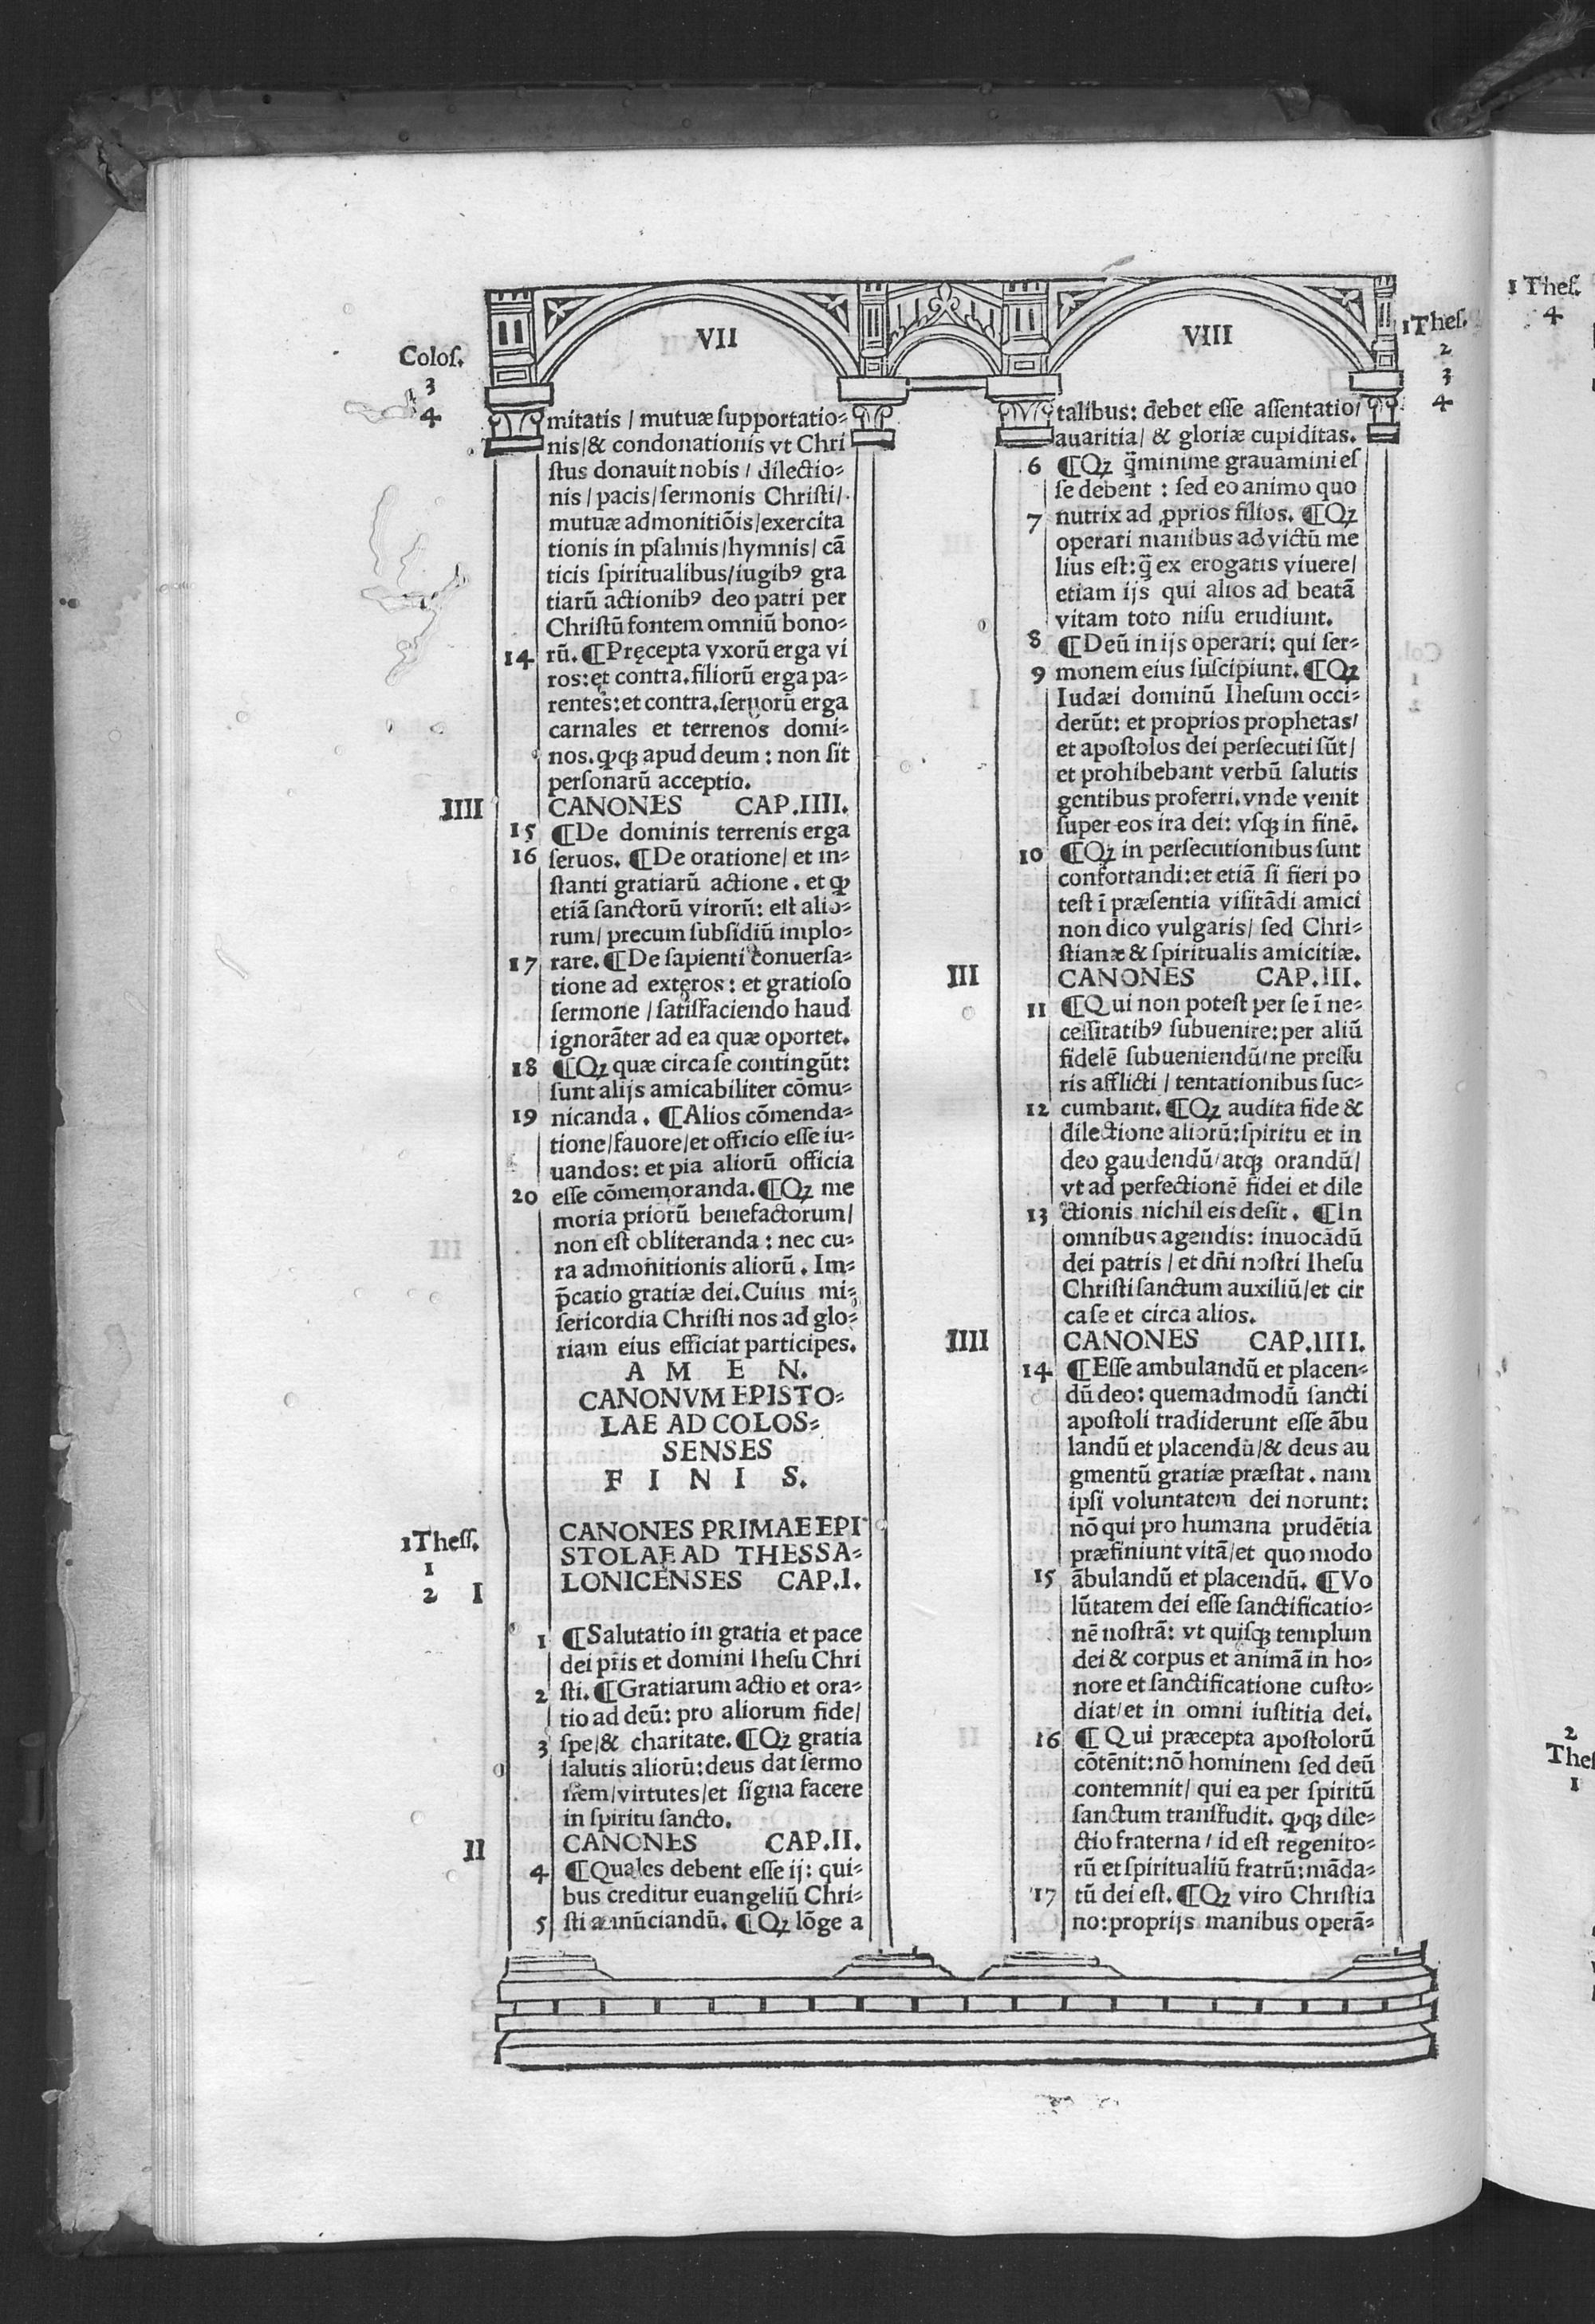 VII
Coloſ.
3
4
mitatis / mutuæ ſupportatio⸗
nis/& condonationis vt Chri
ſtus donauit nobis / dilectio⸗
nis / pacis/ſermonis Chriſti/
mutuæ admonitiõis/exercita
tionis in pſalmis/hymnis/ cã
ticis ſpiritualibus/iugibꝰ gra
tiarũ actionibꝰ deo patri per
Chriſtũ fontem omniũ bono⸗
14 rũ. ¶Pręcepta vxorũ erga vi
ros: et contra. filiorũ erga pa⸗
rentes: et contra. ſeruorũ erga
carnales et terrenos domi⸗
nos. ꝙꝗ apud deum : non ſit
perſonarũ acceptio.
IIII CANONES CAP.IIII.
15 ¶De dominis terrenis erga
16 ſeruos. ¶De oratione/ et in⸗
ſtanti gratiarũ actione . et ꝙ
etiã ſanctorũ virorũ: eſt alio⸗
rum/ precum ſubſidiũ implo⸗
17 rare. ¶De ſapienti conuerſa⸗
tione ad exteros: et gratioſo
ſermone / ſatiſfaciendo haud
ignorãter ad ea quæ oportet.
18 ¶Qꝫ quæ circa ſe contingũt:
ſunt alijs amicabiliter cõmu⸗
19 nicanda . ¶Alios cõmenda⸗
tione/fauore/et officio eſſe iu⸗
uandos: et pia aliorũ officia
20 eſſe cõmemoranda. ¶Qꝫ me
moria priorũ benefactorum/
non eſt obliteranda : nec cu⸗
ra admonitionis aliorũ . Im⸗
p̃catio gratiæ dei. Cuius mi⸗
ſericordia Chriſti nos ad glo⸗
riam eius efficiat participes.
A M E N.
CANONVM EPISTO⸗
LAE AD COLOS⸗
SENSES
F I N I S.
1Theſſ.
1
2
CANONES PRIMAE EPI
STOLAE AD THESSA⸗
I LONICENSES CAP.I.
1 ¶Salutatio in gratia et pace
dei p̃ris et domini Iheſu Chri
2 ſti. ¶Gratiarum actio et ora⸗
tio ad deũ: pro aliorum fide/
3 ſpe/& charitate. ¶Qꝫ gratia
ſalutis aliorũ: deus dat ſermo
nem/virtutes/et ſigna facere
in ſpiritu ſancto.
II CANONES CAP.II.
4 ¶Quales debent eſſe ij: qui⸗
bus creditur euangeliũ Chri⸗
5 ſti annũciandũ. ¶Qꝫ lõge a
VIII
1Theſ.
2
3
4
talibus: debet eſſe aſſentatio/
auaritia/ & gloriæ cupiditas.
6 ¶Qꝫ q̃minime grauamini eſ
ſe debent : ſed eo animo quo
7 nutrix ad ꝓprios filios. ¶Qꝫ
operari manibus ad victũ me
lius eſt: q̃ ex erogatis viuere/
etiam ijs qui alios ad beatã
vitam toto niſu erudiunt.
8 ¶Deũ in ijs operari: qui ſer⸗
9 monem eius ſuſcipiunt. ¶Qꝫ
Iudæi dominũ Iheſum occi⸗
derũt: et proprios prophetas/
et apoſtolos dei perſecuti ſũt/
et prohibebant verbũ ſalutis
gentibus proferri. vnde venit
ſuper eos ira dei: vſꝗ in finẽ.
10 ¶Qꝫ in perſecutionibus ſunt
confortandi: et etiã ſi fieri po
teſt ĩ præſentia viſitãdi amici
non dico vulgaris/ ſed Chri⸗
ſtianæ & ſpiritualis amicitiæ.
III CANONES CAP.III.
11 ¶Qui non poteſt per ſe ĩ ne⸗
ceſſitatibꝰ ſubuenire: per aliũ
fidelẽ ſubueniendũ/ne preſſu
ris afflicti / tentationibus ſuc⸗
12 cumbant. ¶Qꝫ audita fide &
dilectione aliorũ: ſpiritu et in
deo gaudendũ/atꝗ orandũ/
vt ad perfectionẽ fidei et dile
13 ctionis nichil eis deſit . ¶In
omnibus agendis: inuocãdũ
dei patris / et dñi noſtri Iheſu
Chriſti ſanctum auxiliũ/et cir
ca ſe et circa alios.
IIII CANONES CAP.IIII.
14 ¶Eſſe ambulandũ et placen⸗
dũ deo: quemadmodũ ſancti
apoſtoli tradiderunt eſſe ãbu
landũ et placendũ/& deus au
gmentũ gratiæ præſtat . nam
ipſi voluntatem dei norunt:
nõ qui pro humana prudẽtia
præfiniunt vitã/et quo modo
15 ãbulandũ et placendũ. ¶Vo
lũtatem dei eſſe ſanctificatio⸗
nẽ noſtrã: vt quiſꝗ templum
dei & corpus et animã in ho⸗
nore et ſanctificatione cuſto⸗
diat/et in omni iuſtitia dei.
16 ¶Qui præcepta apoſtolorũ
cõtẽnit: nõ hominem ſed deũ
contemnit/ qui ea per ſpiritũ
ſanctum tranſfudit. ꝙꝗ dile⸗
ctio fraterna / id eſt regenito⸗
rũ et ſpiritualiũ fratrũ: mãda⸗
17 tũ dei eſt. ¶Qꝫ viro Chriſtia
no: proprijs manibus operã⸗
1 Theſ.
4
2
1